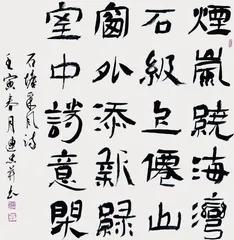 煙嵐繞海灣
石級上僊山
窗外添新綠
室中詩意閑
石塘采風詩
壬寅春月